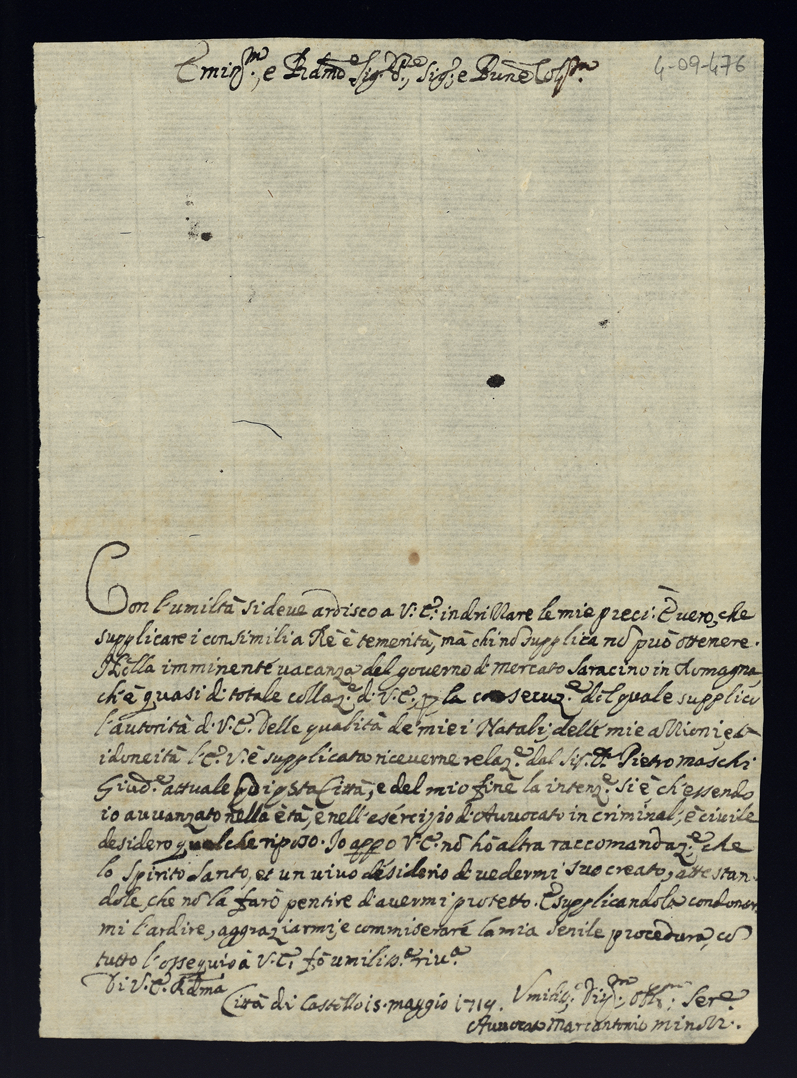 Emin.mo, e R.dmo Sig.r P.ne, Sig.re, e P.ne Col.mo
4-09-476
Con l'umiltà si deve ardisco a V: E: indrizzare le mie preci: È vero, che
supplicare i consimili a Rè è temerità, mà chi nõ supplica nõ può ottenere.
Nella imminente vacanza del governo di Mercato Saracino in Romagna,
ch'è quasi di totale collaz.e di V: E:, p la conseruz.e del quale supplico
l'autorità di V: E: delle qualità de miei Natali, delle mie azzioni, ed
idoneità l'E: V: è supplicata riceverne relaz.e dal Sig.r Pietro maschi
Giud.e attuale di q.sta Città, e del mio fine la intenz.e si è ch'essendo
io avvanzato nella età, e nell'esercizio di Avvocato in criminal, e civile
desidero qualche riposo. Io appo V: E: nõ hò altra raccomandaz.e che
lo Spirito Santo, et un vivo desiderio di vedermi suo creato, attestan-
dole, che nõ la farò pentire di avermi protetto. E supplicandola condonar
mi l'ardire, aggraziarmi, e commiserare la mia senile procedura, cõ
tutto l'ossequio à V: E: fò umiliss.a riv.a
Di V: E: R.dma
Città di Castello 15. maggio 1714.
Umiliss: Div.mo: Obb.mo: Ser.e
Avvocato Marcantonio